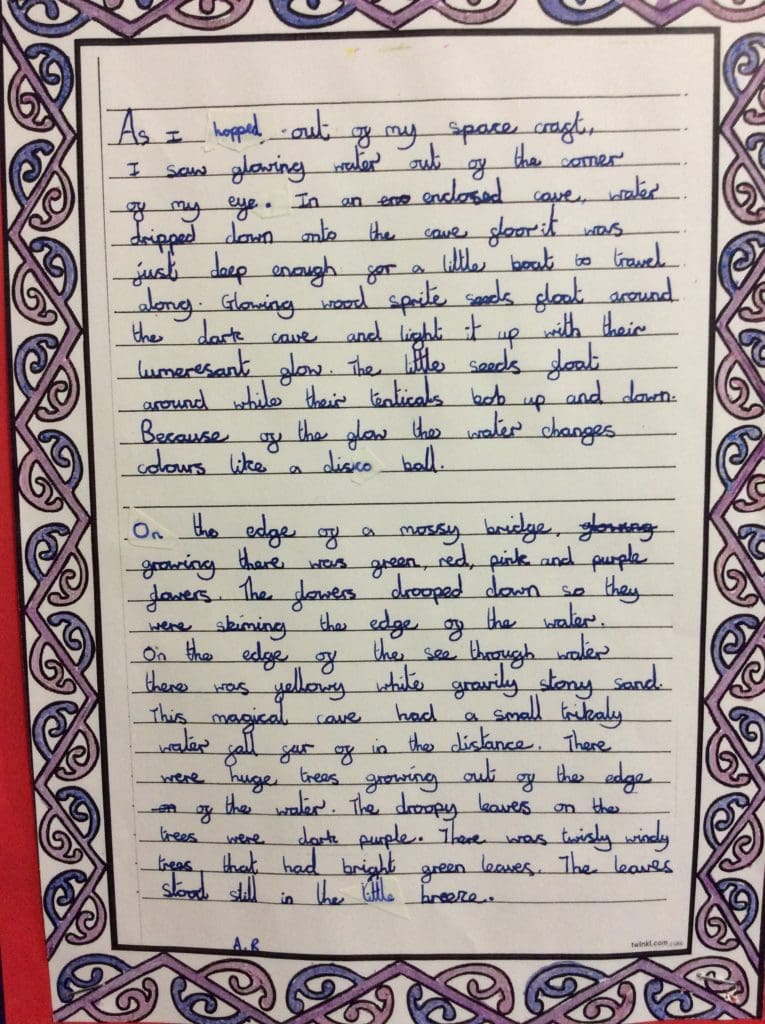 As I hopped out of my space craft,
I saw glowing water out of the corner
of my eye. In an ~~eno~~ enclosed cave, water
dripped down onto the cave floor it was
just deep enough for a little boat to travel
along. Glowing wood sprite seeds float around
the dark cave and light it up with their
lumeresant glow. The little seeds float
around while their tenticals bob up and down.
Because of the glow the water changes
colours like a disico ball.
On the edge of a mossy bridge, ~~glowing~~
growing there was green, red, pink and purple
flowers. The flowers drooped down so they
were skiming the edge of the water.
On the edge of the see through water
there was yellowy white gravily stony sand.
This magical cave had a small trikaly
water fall far of in the distance. There
were huge trees growing out of the edge
~~on~~ of the water. The droopy leaves on the
trees were dark purple. There was twisty windy
trees that had bright green leaves. The leaves
stood still in the little breeze.
A.R
twinkl.com